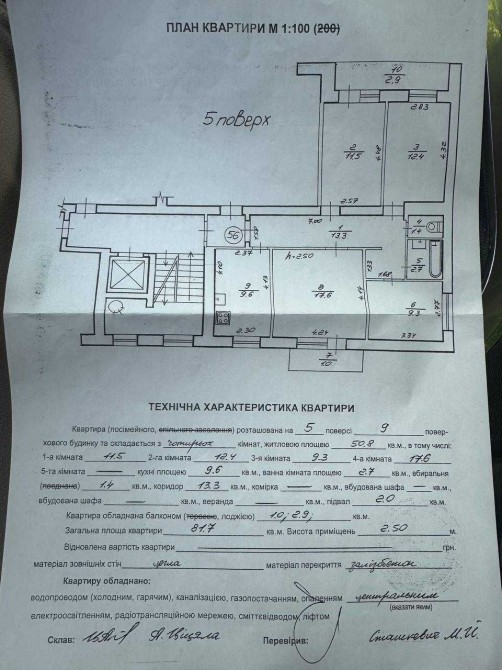 ПЛАН КВАРТИРИ М 1:100 (200)
10
2.9
2.83
5 поверх
2
11.5
4.48
3
12.4
4.32
2.57
7.00
1
13.3
4
1.4
56
1.50
2.37
h=2.50
1.33
5
2.7
1.68
4.10
9
9.6
4.13
8
17.6
4.14
6
9.3
2.77
2.30
4.24
3.37
7
1.0
ТЕХНІЧНА ХАРАКТЕРИСТИКА КВАРТИРИ
Квартира (посімейного, спільного заселення) розташована на 5 поверсі 9 повер-
хового будинку та складається з чотирьох кімнат, житловою площею 50.8 кв.м., в тому числі:
1-а кімната 11.5 2-га кімната 12.4 3-я кімната 9.3 4-а кімната 17.6
5-та кімната кухні площею 9.6 кв.м., ванна кімната площею 2.7 кв.м., вбиральня
(поєднана) 1.4 кв.м., коридор 13.3 кв.м., комірка кв.м., вбудована шафа кв.м.,
вбудована шафа кв.м., веранда кв.м., підвал 2.0 кв.м.
Квартира обладнана балконом (терасою, лоджією) 1.0; 2.9; кв.м.
Загальна площа квартири 81.7 кв.м. Висота приміщень 2.50 м.
Відновлена вартість квартири грн.
матеріал зовнішніх стін цегла матеріал перекриття залізобетон
Квартиру обладнано:
водопроводом (холодним, гарячим), каналізацією, газопостачанням, опаленням центральним
(вказати яким)
електроосвітленням, радіотрансляційною мережею, сміттєвідводом, ліфтом
Склав: Перевірив: Сташкевич М.Й.